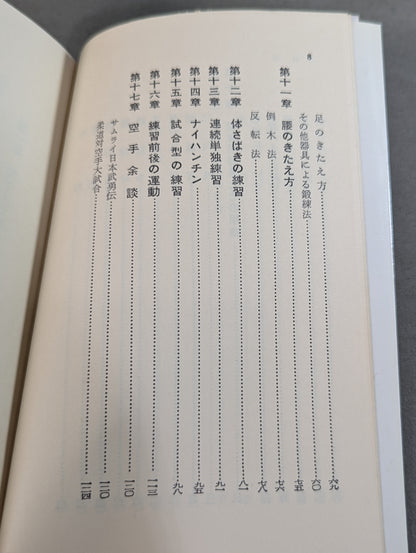 8
足のきたえ方……六九
その他器具による鍛練法……七〇
第十一章 腰のきたえ方……七五
倒木法……七六
反転法……七八
第十二章 体さばきの練習……八一
第十三章 連続単独練習……九一
第十四章 ナイハンチン……九五
第十五章 試合型の練習……九八
第十六章 練習前後の運動……一一三
第十七章 空手余談……一二〇
サムライ日本武勇伝……一二〇
柔道対空手大試合……一二四